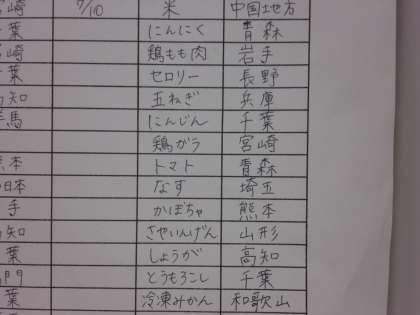 宮崎 7/10 米 中国地方
千葉 にんにく 青森
宮崎 鶏もも肉 岩手
千葉 セロリー 長野
高知 玉ねぎ 兵庫
群馬 にんじん 千葉
鶏ガラ 宮崎
熊本 トマト 青森
なす 埼玉
岩手 かぼちゃ 熊本
高知 さやいんげん 山形
千葉 しょうが 高知
とうもろこし 千葉
千葉 冷凍みかん 和歌山